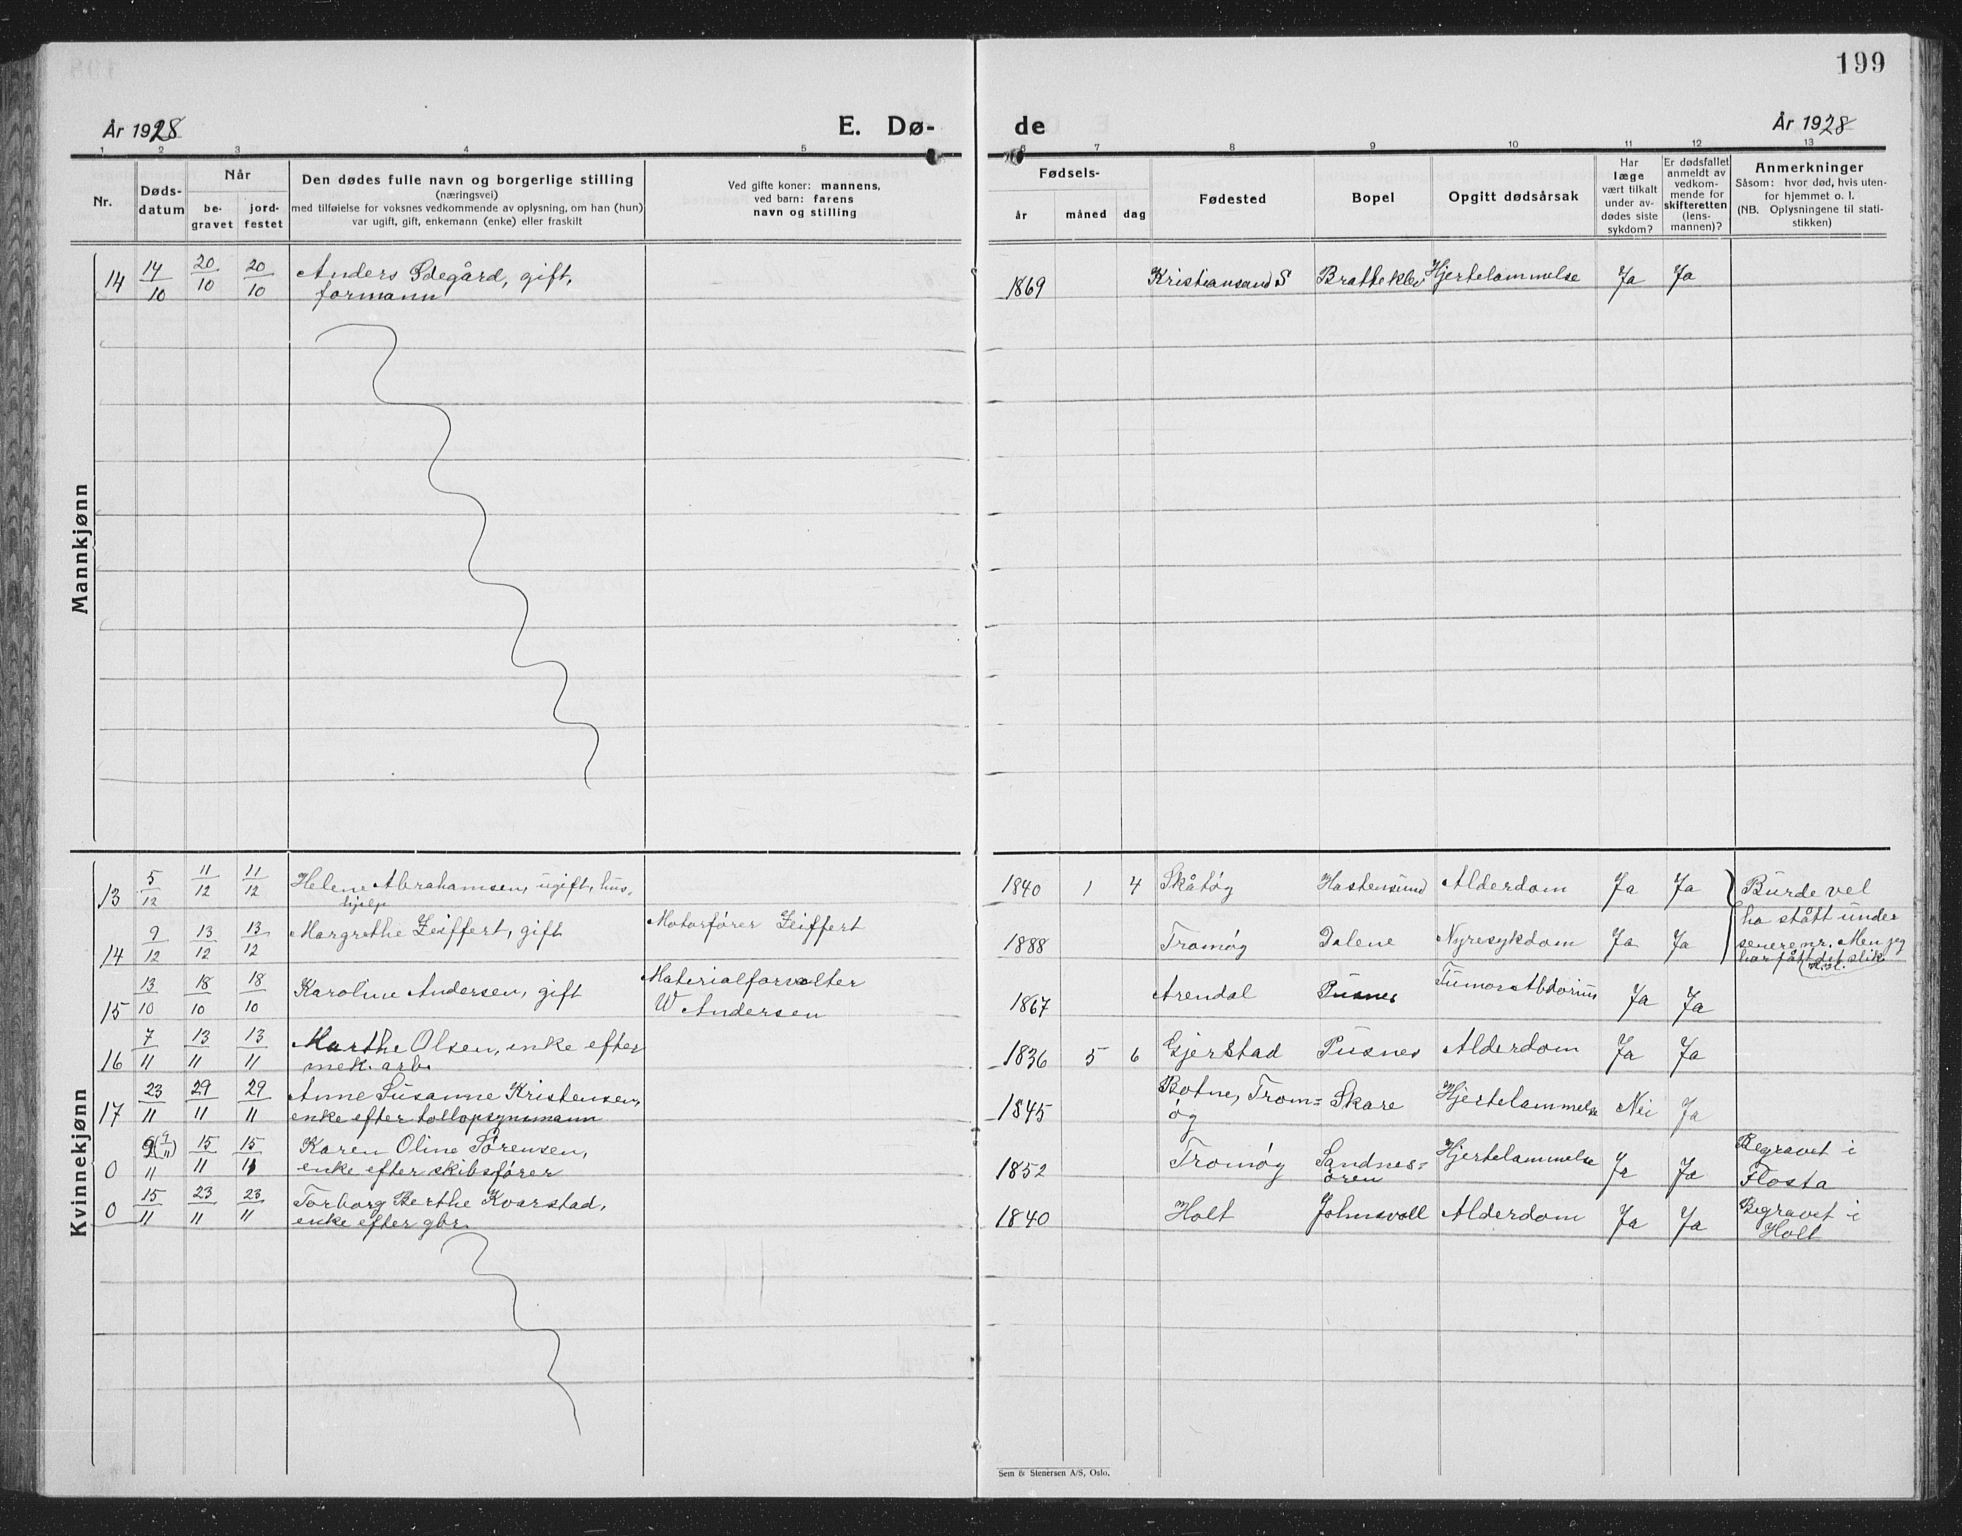 199
År 1928
E. Dø-
de
År 1928
1 2 3 4 5 6 7 8 9 10 11 12 13
Nr.
Døds-
datum
Når
be-
gravet
jord-
festet
Den dødes fulle navn og borgerlige stilling
(næringsvei)
med tilføielse for voksnes vedkommende av oplysning, om han (hun)
var ugift, gift, enkemann (enke) eller fraskilt
Ved gifte koner: mannens,
ved barn: farens
navn og stilling
Fødsels-
år måned dag
Fødested
Bopel
Opgitt dødsårsak
Har
læge
vært tilkalt
under av-
dødes siste
sykdom?
Er dødsfallet
anmeldt av
vedkom-
mende for
skifteretten
(lens-
mannen)?
Anmerkninger
Såsom: hvor død, hvis uten-
for hjemmet o. l.
(NB. Oplysningene til stati-
stikken)
Mannkjønn
14 14/10 20/10 20/10 Anders Ødegård, gift, 1869 Kristiansand S Bratteklev Hjertelammelse Ja Ja
formann
Kvinnekjønn
13 5/12 11/12 11/12 Helene Abrahamsen, ugift, hus- 1840 1 4 Skåtøy Hastensund Alderdom Ja Ja Burde vel
hjelp
ha stått under
14 9/12 13/12 13/12 Margrethe Zeiffert, gift Motorfører Zeiffert 1888 Tromøy Dalene Nyresykdom Ja Ja senere nr. Men jeg
har fått det slik
15 13/10 18/10 18/10 Karoline Andersen, gift Materialforvalter 1867 Arendal Pusnes Ja Ja
W Andersen
16 7/11 13/11 13/11 Marthe Olsen, enke efter 1836 5 6 Gjerstad Pusnes Alderdom Ja Ja
mek. arb.
17 23/11 29/11 29/11 Anne Susanne Kristensen, 1845 Botne, Trom= Skare Hjertelammelse Nei Ja
enke efter tollopsynsmann øy
0 9(9/11)/11 15/11 15/11 Karen Oline Sørensen, 1852 Tromøy Sandnes= Hjertelammelse Ja Ja Begravet i
enke efter skibsfører øren Flosta
0 15/11 23/11 23/11 Torborg Berthe Kvarstad, 1840 Holt Johnsvoll Alderdom Ja Ja Begravet i
enke efter gbr. Holt
Sem & Stenersen A/S, Oslo.